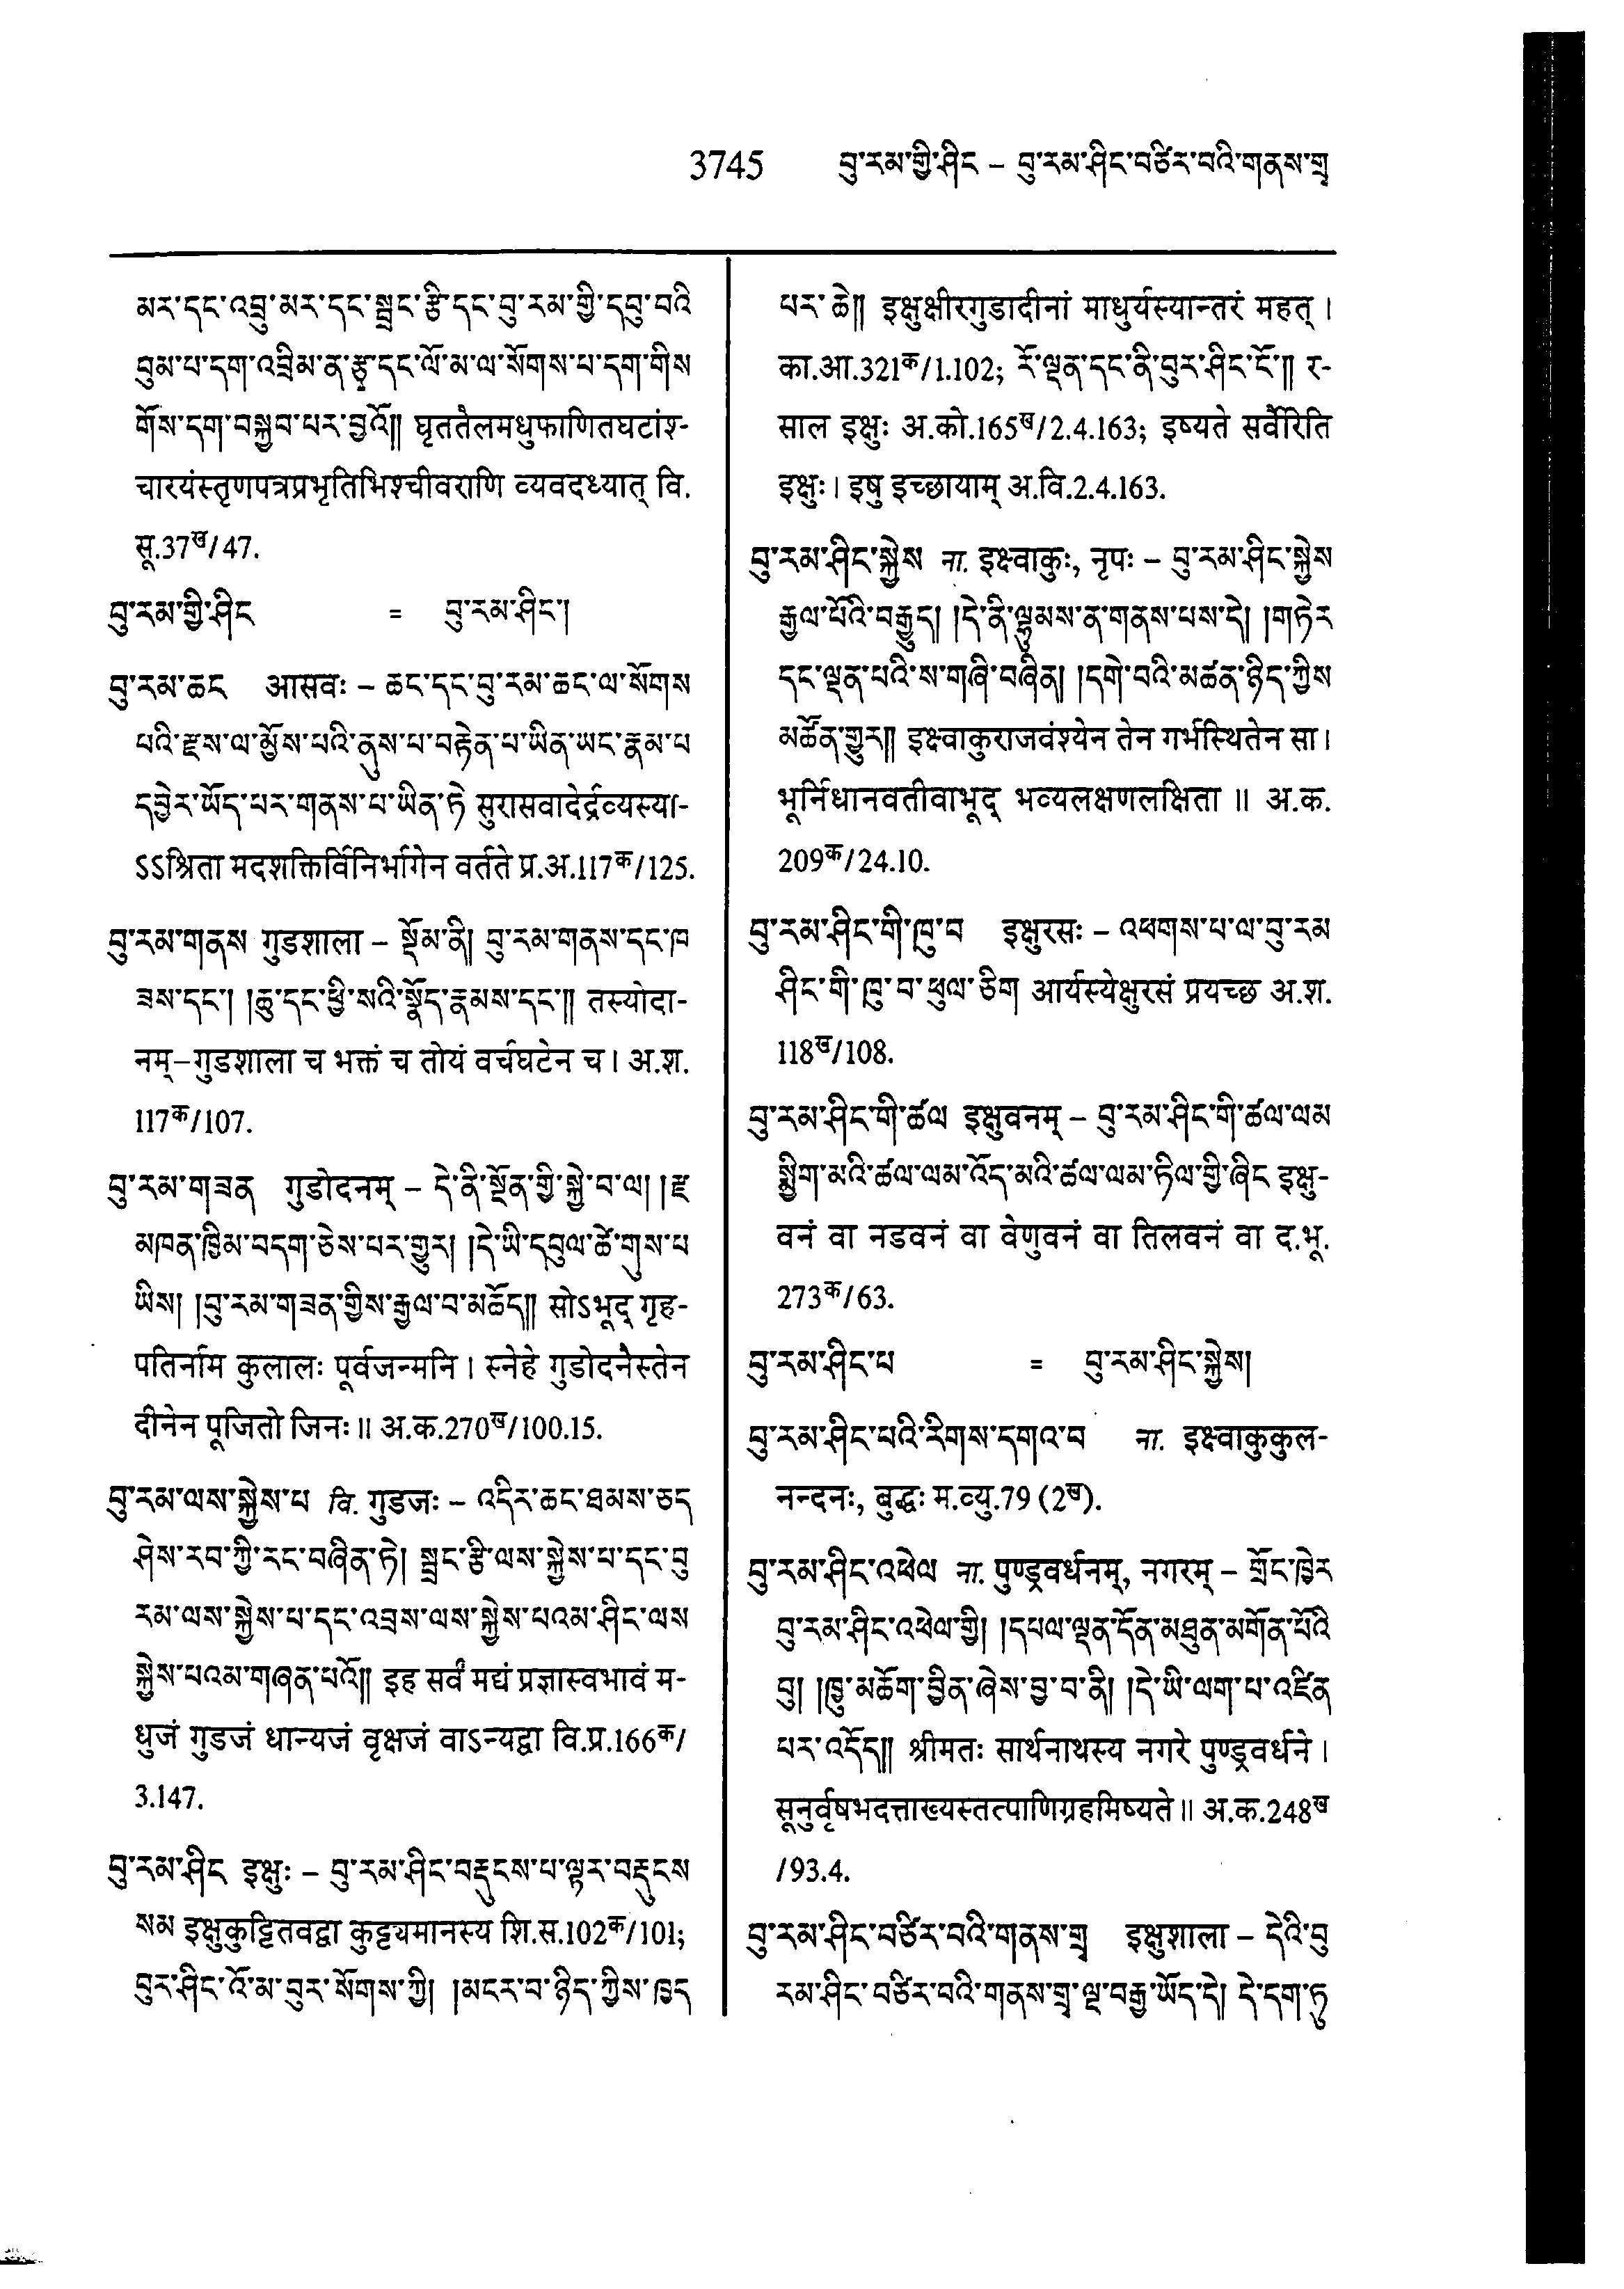 3745 བུ་རམ་གྱི་ཤིང – བུ་རམ་ཤིང་བཙིར་བའི་གནས་གྲྭ
མར་དང་འབྲུ་མར་དང་སྦྲང་རྩི་དང་བུ་རམ་གྱི་དབུ་བའི
བུམ་པ་དག་འབྲིམ་ན་རྩྭ་དང་ལོ་མ་ལ་སོགས་པ་དག་གིས
གོས་དག་བསྐྱབ་པར་བྱའོ༎ घृततैलमधुफाणितघटांश्-
चारयंस्तृणपत्रप्रभृतिभिश्चीवराणि व्यवदध्यात् वि.
सू.37ख/47.
བུ་རམ་གྱི་ཤིང = བུ་རམ་ཤིང་།
བུ་རམ་ཆང आसवः – ཆང་དང་བུ་རམ་ཆང་ལ་སོགས
པའི་རྫས་ལ་མྱོས་པའི་ནུས་པ་བརྟེན་པ་ཡིན་ཡང་རྣམ་པ
དབྱེར་ཡོད་པར་གནས་པ་ཡིན་ཏེ सुरासवादेर्द्रव्यस्या-
ऽऽश्रिता मदशक्तिर्विनिर्भागेन वर्तते प्र.अ.117क/125.
བུ་རམ་གནས गुडशाला – སྡོམ་ནི། བུ་རམ་གནས་དང་ཁ
ཟས་དང་། །ཆུ་དང་ཕྱི་སའི་སྣོད་རྣམས་དང་༎ तस्योदा-
नम्–गुडशाला च भक्तं च तोयं वर्चघटेन च। अ.श.
117क/107.
བུ་རམ་གཟན गुडोदनम् – དེ་ནི་སྔོན་གྱི་སྐྱེ་བ་ལ། །རྫ
མཁན་ཁྱིམ་བདག་ཅེས་པར་གྱུར། །དེ་ཡི་དབུལ་ཚེ་གུས་པ
ཡིས། །བུ་རམ་གཟན་གྱིས་རྒྱལ་བ་མཆོད༎ सोऽभूद् गृह-
पतिर्नाम कुलालः पूर्वजन्मनि। स्नेहे गुडोदनैस्तेन
दीनेन पूजितो जिनः॥ अ.क.270ख/100.15.
བུ་རམ་ལས་སྐྱེས་པ वि. गुडजः – འདིར་ཆང་ཐམས་ཅད
ཤེས་རབ་ཀྱི་རང་བཞིན་ཏེ། སྦྲང་རྩི་ལས་སྐྱེས་པ་དང་བུ
རམ་ལས་སྐྱེས་པ་དང་འབྲས་ལས་སྐྱེས་པའམ་ཤིང་ལས
སྐྱེས་པའམ་གཞན་པའོ༎ इह सर्वं मद्यं प्रज्ञास्वभावं म-
धुजं गुडजं धान्यजं वृक्षजं वाऽन्यद्वा वि.प्र.166क/
3.147.
བུ་རམ་ཤིང इक्षुः – བུ་རམ་ཤིང་བརྡུངས་པ་ལྟར་བརྡུངས
སམ इक्षुकुट्टितवद्वा कुट्ट्यमानस्य शि.स.102क/101;
བུར་ཤིང་འོ་མ་བུར་སོགས་ཀྱི། །མངར་བ་ཉིད་ཀྱིས་ཁྱད
པར་ཆེ༎ इक्षुक्षीरगुडादीनां माधुर्यस्यान्तरं महत्।
का.आ.321क/1.102; རོ་ལྡན་དང་ནི་བུར་ཤིང་ངོ་༎ र-
साल इक्षुः अ.को.165ख/2.4.163; इष्यते सर्वैरिति
इक्षुः। इषु इच्छायाम् अ.वि.2.4.163.
བུ་རམ་ཤིང་སྐྱེས ना. इक्ष्वाकुः, नृपः – བུ་རམ་ཤིང་སྐྱེས
རྒྱལ་པོའི་བརྒྱུད། །དེ་ནི་ལྷུམས་ན་གནས་པས་དེ། །གཏེར
དང་ལྡན་པའི་ས་གཞི་བཞིན། །དགེ་བའི་མཚན་ཉིད་ཀྱིས
མཚོན་གྱུར༎ इक्ष्वाकुराजवंश्येन तेन गर्भस्थितेन सा।
भूर्निधानवतीवाभूद् भव्यलक्षणलक्षिता॥ अ.क.
209क/24.10.
བུ་རམ་ཤིང་གི་ཁུ་བ इक्षुरसः – འཕགས་པ་ལ་བུ་རམ
ཤིང་གི་ཁུ་བ་ཕུལ་ཅིག आर्यस्येक्षुरसं प्रयच्छ अ.श.
118ख/108.
བུ་རམ་ཤིང་གི་ཚལ इक्षुवनम् – བུ་རམ་ཤིང་གི་ཚལ་ལམ
སྨྱིག་མའི་ཚལ་ལམ་འོད་མའི་ཚལ་ལམ་ཏིལ་གྱི་ཞིང इक्षु-
वनं वा नडवनं वा वेणुवनं वा तिलवनं वा द.भू.
273क/63.
བུ་རམ་ཤིང་པ = བུ་རམ་ཤིང་སྐྱེས།
བུ་རམ་ཤིང་པའི་རིགས་དགའ་བ ना. इक्ष्वाकुकुल-
नन्दनः, बुद्धः म.व्यु.79 (2ख).
བུ་རམ་ཤིང་འཕེལ ना. पुण्ड्रवर्धनम्, नगरम् – གྲོང་ཁྱེར
བུ་རམ་ཤིང་འཕེལ་གྱི། །དཔལ་ལྡན་དོན་མཐུན་མགོན་པོའི
བུ། །ཁྱུ་མཆོག་བྱིན་ཞེས་བྱ་བ་ནི། །དེ་ཡི་ལག་པ་འཛིན
པར་འདོད༎ श्रीमतः सार्थनाथस्य नगरे पुण्ड्रवर्धने।
सूनुर्वृषभदत्ताख्यस्तत्पाणिग्रहमिष्यते॥ अ.क.248ख
/93.4.
བུ་རམ་ཤིང་བཙིར་བའི་གནས་གྲྭ इक्षुशाला – དེའི་བུ
རམ་ཤིང་བཙིར་བའི་གནས་གྲྭ་ལྔ་བརྒྱ་ཡོད་དེ། དེ་དག་ཏུ